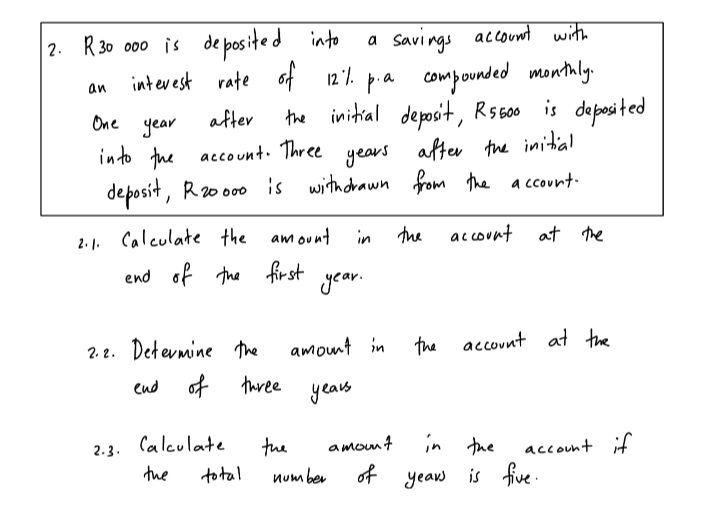 2. R30 000 is deposited into a savings account with
an interest rate of 12% p.a compounded monthly.
One year after the initial deposit, R5600 is deposited
into the account. Three years after the initial
deposit, R20 000 is withdrawn from the account.
2.1. Calculate the amount in the account at the
end of the first year.
2.2. Determine the amount in the account at the
end of three years
2.3. Calculate the amount in the account if
the total number of years is five.